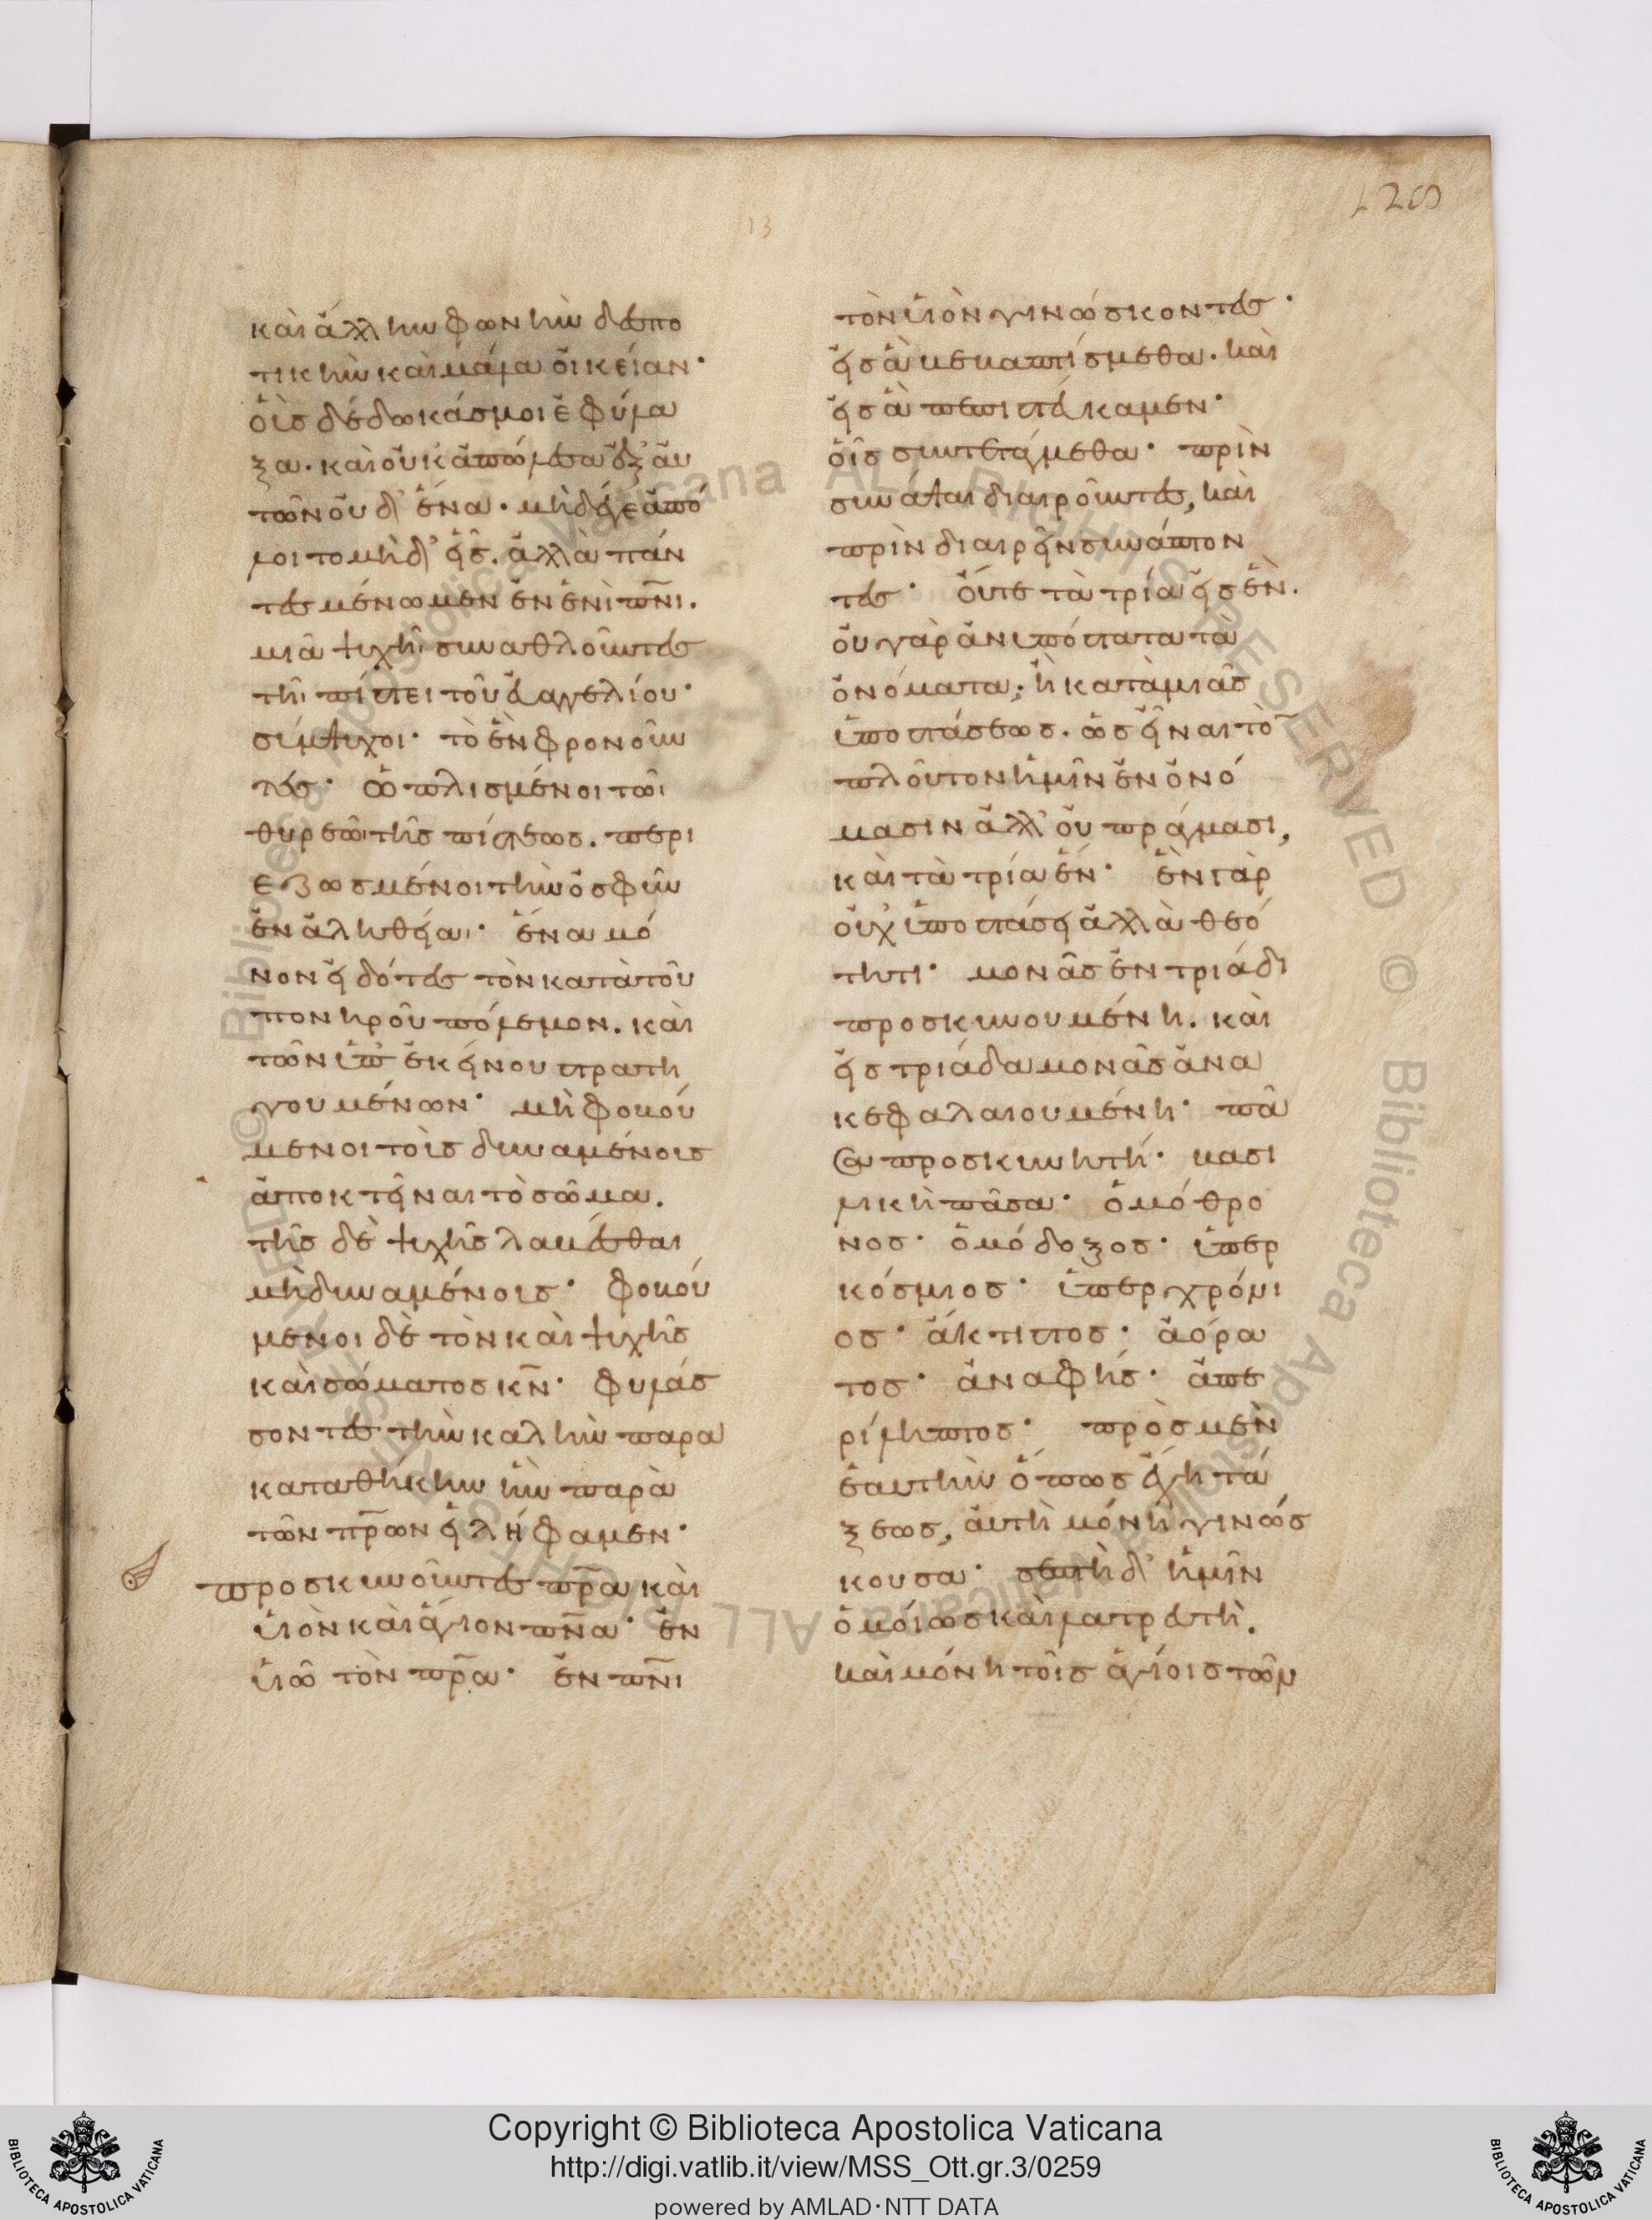 128
13
καὶ ἄλλην φωνὴν δεσπο
τικὴν καὶ μάλα οἰκείαν·
οἷς δέδωκάς μοι ἐφύλα
ξα. καὶ οὐκ ἀπώλεσα ἐξ αὐ
τῶν οὐδ' ἕνα. μὴ δέ γε ἀπό
λοιτο μὴδ' εἷς. ἀλλὰ πάν
τες μένωμεν ἐν ἑνὶ πνι.
μιᾶ ψυχῆι συναθλοῦντες
τῆι πίστει τοῦ εὐαγγελίου·
σύμψυχοι· τὸ ἓν φρονοῦν
τές· ὡπλισμένοι τῶι
θυρεῶι τῆς πίστεως. περι
εζωσμένοι τὴν ὀσφῦν
ἐν ἀληθείαι· ἕνα μό
νον εἰδότες τὸν κατὰ τοῦ
πονηροῦ πόλεμον. καὶ
τῶν ὑπ' ἐκείνου στρατη
γουμένων· μὴ φοβού
μενοι τοὶς δυναμένοις
ἀποκτεῖναι τὸ σῶμα.
τῆς δὲ ψυχῆς λαβέσθαι
μὴ δυναμένοις· φοβού
μενοι δὲ τὸν καὶ ψυχῆς
καὶ σώματος κν· φυλάσ
σοντες τὴν καλὴν παρα
καταθήκην ἣν παρὰ
τῶν πρων εἰλήφαμεν·
προσκυνοῦντες πρα καὶ
υἱὸν καὶ ἅγιον πνα· ἐν
υἱῶ τὸν πρα· ἐν πνι
τὸν υἱὸν γινώσκοντες·
εἰς ἃ βεβαπτίσμεθα. καὶ
εἰς ἃ πεπιστεύκαμεν·
οἷς συντετάγμεθα· πρὶν
συνάψαι διαιροῦντες, καὶ
πρὶν διαιρεῖν συνάπτον
τες· οὔτε τὰ τρία εἰς ἓν.
οὐ γὰρ ἀνυπόστατα τὰ
ὀνόματα; ἢ κατὰ μιᾶς
ὑποστάσεως. ὡς εἶναι τὸν
πλοῦτον ἡμῖν ἐν ὀνό
μασιν ἀλλ' οὐ πράγμασι,
καὶ τὰ τρία ἕν· ἓν γὰρ
οὐχ ὑποστάσει ἀλλὰ θεό
τητι· μονὰς ἐν τριάδι
προσκυνουμένη. καὶ
εἰς τριάδα μονὰς ἀνα
κεφαλαιουμένη· πᾶ
σα προσκυνητή· βασι
λικὴ πᾶσα· ὁμόθρο
νος· ὁμόδοξος· ὑπερ
κόσμιος· ὑπερχρόνι
ος· ἄκτιστος· ἀόρα
τος· ἀναφής· ἀπε
ρίληπτος· πρὸς μὲν
ἑαυτὴν ὅπως ἔχη τά
ξεως, αὐτῆ μόνη γινώσ
κουσα· σεπτὴ δ' ἡμῖν
ὁμοίως καὶ λατρευτὴ.
καὶ μόνη τοῖς ἁγίοις τῶν
Copyright © Biblioteca Apostolica Vaticana
http://digi.vatlib.it/view/MSS_Ott.gr.3/0259
powered by AMLAD·NTT DATA